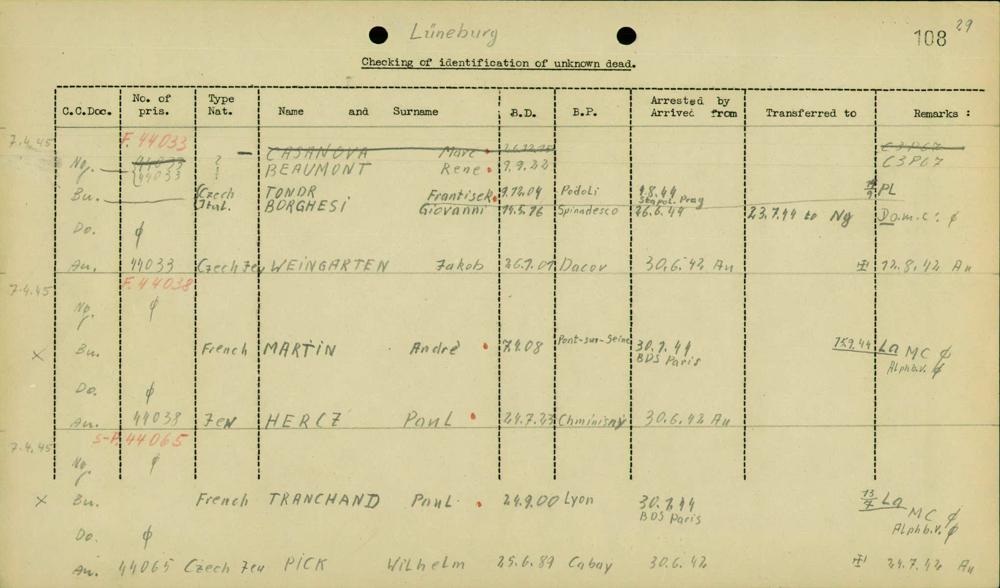 Lüneburg
108 29
Checking of identification of unknown dead.
C.C.Doc. No. of pris. Type Nat. Name and Surname B.D. B.P. Arrested by Arrived from Transferred to Remarks :
7.4.45 F. 44033
CASANOVA Marc C3P67
Ng. 44033 ? BEAUMONT Rene 9.9.22 C3P67
Bu. Czech TONDR Frantisek 9.12.04 Podoli 1.8.44 Stapol. Prag PL
Ital. BORGHESI Giovanni 14.5.16 Spinadesco 26.6.44 23.7.44 to Ng Do.m.c: ϕ
Do. ϕ
Au. 44033 Czech Jew WEINGARTEN Jakob 26.7.01 Dacov 30.6.42 Au 12.8.42 Au
7.4.45 F. 44038
Ng. ϕ
x Bu. French MARTIN André 7.4.08 Pont-sur-Seine 30.7.44 BDS Paris 15.9.44 La MC ϕ
Alphb.v. ϕ
Do. ϕ
Au. 44038 Jew HERCZ Paul 24.7.23 30.6.42 Au
7.4.45 S-F. 44065
Ng. ϕ
x Bu. French TRANCHAND Paul 24.9.00 Lyon 30.7.44 BDS Paris La MC ϕ
Alphb.v. ϕ
Do. ϕ
Au. 44065 Czech Jew PICK Wilhelm 25.6.89 Cabay 30.6.42 24.7.42 Au